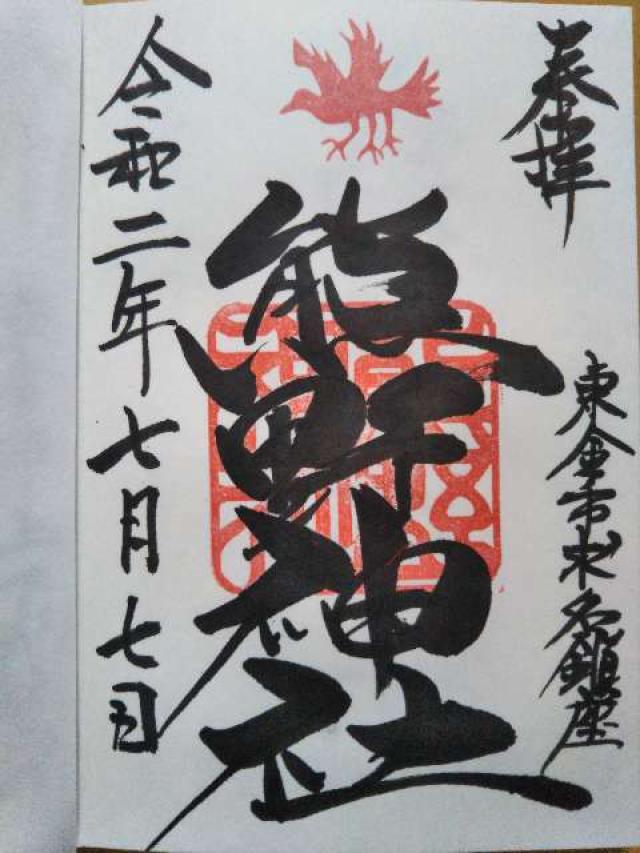 奉拝
東金市求名鎮座
熊野神社
令和二年七月七日